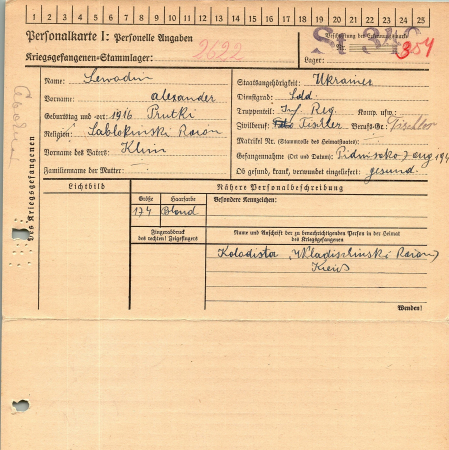 1 2 3 4 5 6 7 8 9 10 11 12 13 14 15 16 17 18 19 20 21 22 23 24 25
Personalkarte I: Personelle Angaben
Kriegsgefangenen-Stammlager:
Nr. 354
Lager:
Des Kriegsgefangenen
Name: Lewadin
Vorname: alexander
Geburtstag und -ort: 1916 Prutki
Religion:
Vorname des Vaters: Klim
Familienname der Mutter:
Staatsangehörigkeit: Ukrainer
Dienstgrad: Sold.
Truppenteil: Inf. Reg. Komp. usw.:
Zivilberuf: Tischler Berufs-Gr.: Tischler
Matrikel Nr. (Stammrolle des Heimatstaates):
Gefangennahme (Ort und Datum):
Ob gesund, krank, verwundet eingeliefert: gesund.
Lichtbild
Nähere Personalbeschreibung
Größe Haarfarbe Besondere Kennzeichen:
174 Blond
Fingerabdruck
des rechten! Zeigefingers
Name und Anschrift der zu benachrichtigenden Person in der Heimat
des Kriegsgefangenen
Wenden!